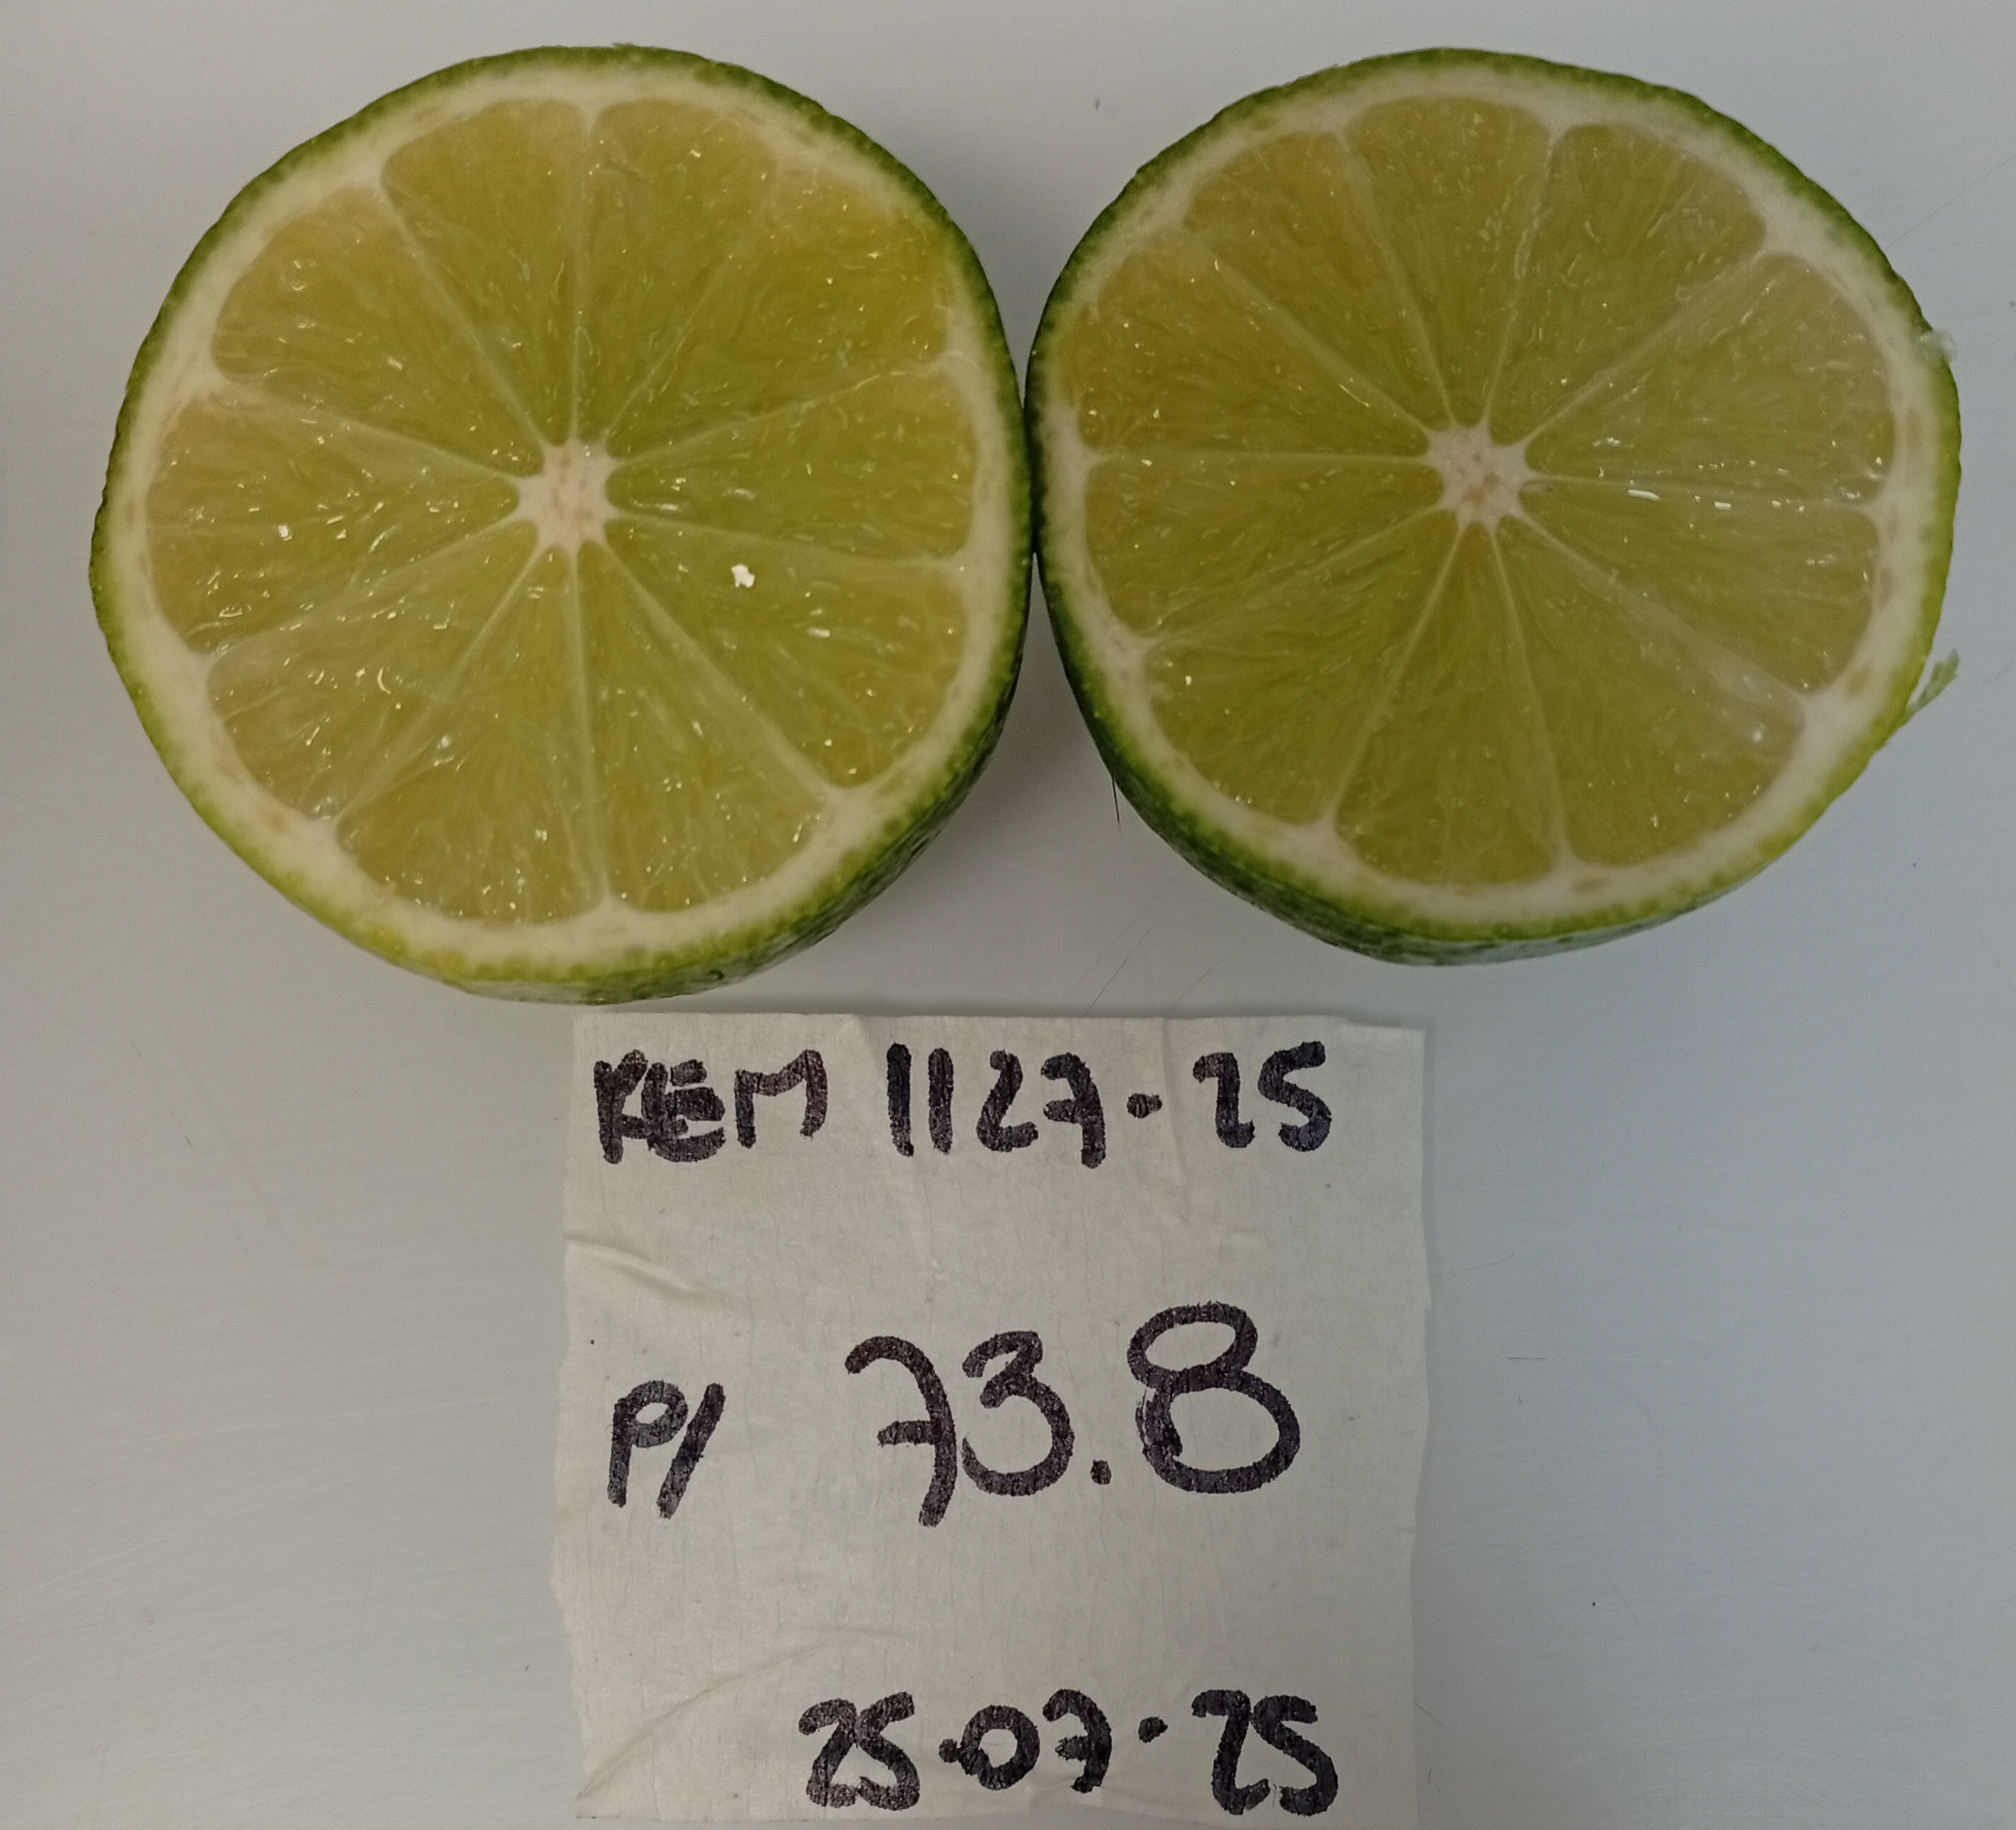 REM 1127-25
P/ 73.8
25-07-25